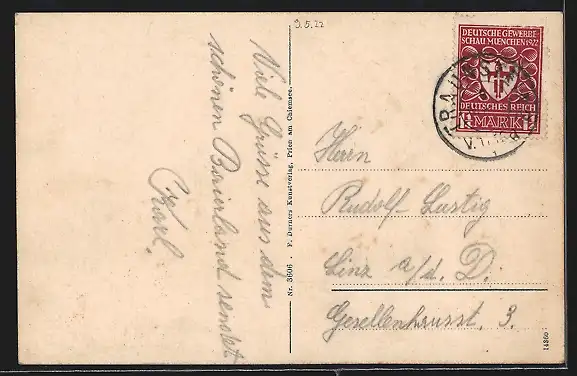 9.5.22
Viele Grüsse aus dem
schönen Baierland sendet
Karl.
Nr. 3606 . F. Durners Kunstverlag, Prien am Chiemsee.
DEUTSCHE GEWERBE-
SCHAU MUENCHEN 1922
DEUTSCHES REICH
1¼ MARK 1¼
TRAUNSTEIN
Herrn
Rudolf Lustig
Linz a/d. D.
Gesellenhausst. 3.